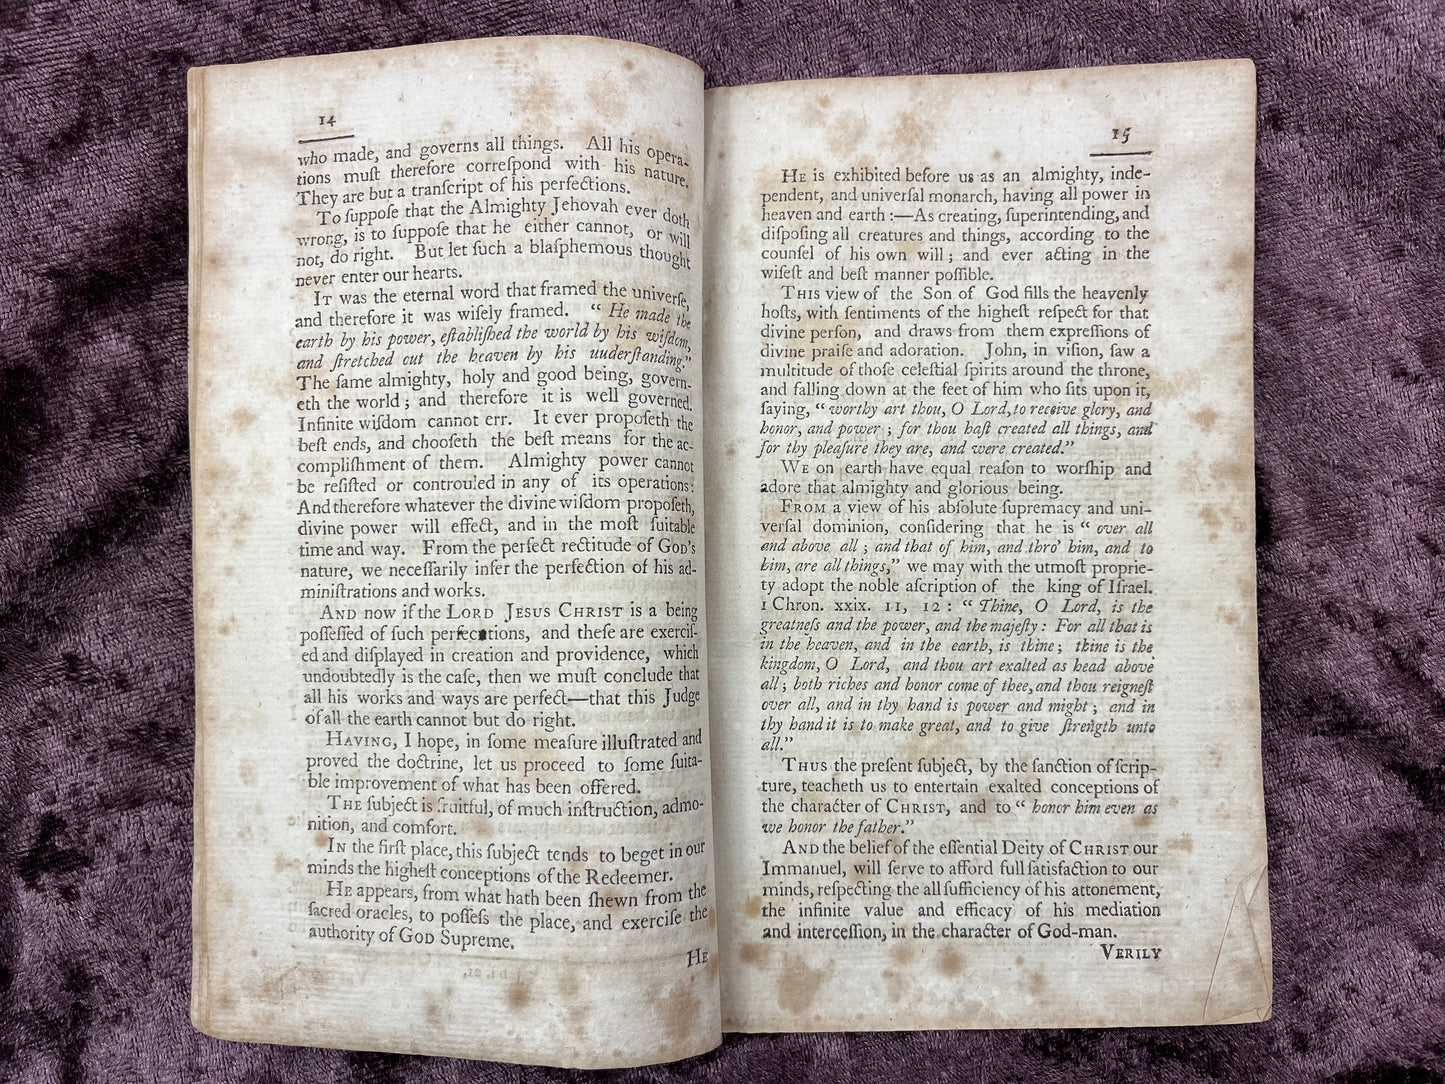 14
who made, and governs all things. All his opera-
tions muſt therefore correſpond with his nature.
They are but a tranſcript of his perfections.
To ſuppoſe that the Almighty Jehovah ever doth
wrong, is to ſuppoſe that he either cannot, or will
not, do right. But let ſuch a blaſphemous thought
never enter our hearts.
IT was the eternal word that framed the univerſe,
and therefore it was wiſely framed. “ He made the
earth by his power, eſtabliſhed the world by his wiſdom,
and ſtretched out the heaven by his uuderſtanding.”
The ſame almighty, holy and good being, govern-
eth the world ; and therefore it is well governed.
Infinite wiſdom cannot err. It ever propoſeth the
beſt ends, and chooſeth the beſt means for the ac-
compliſhment of them. Almighty power cannot
be reſiſted or controuled in any of its operations :
And therefore whatever the divine wiſdom propoſeth,
divine power will effect, and in the moſt ſuitable
time and way. From the perfect rectitude of GOD's
nature, we neceſſarily infer the perfection of his ad-
miniſtrations and works.
AND now if the LORD JESUS CHRIST is a being
poſſeſſed of ſuch perfections, and theſe are exerciſ-
ed and diſplayed in creation and providence, which
undoubtedly is the caſe, then we muſt conclude that
all his works and ways are perfect—that this Judge
of all the earth cannot but do right.
HAVING, I hope, in ſome meaſure illuſtrated and
proved the doctrine, let us proceed to ſome ſuita-
ble improvement of what has been offered.
THE ſubject is fruitful, of much inſtruction, admo-
nition, and comfort.
IN the firſt place, this ſubject tends to beget in our
minds the higheſt conceptions of the Redeemer.
HE appears, from what hath been ſhewn from the
ſacred oracles, to poſſeſs the place, and exerciſe the
authority of GOD Supreme.
HE
15
HE is exhibited before us as an almighty, inde-
pendent, and univerſal monarch, having all power in
heaven and earth :—As creating, ſuperintending, and
diſpoſing all creatures and things, according to the
counſel of his own will ; and ever acting in the
wiſeſt and beſt manner poſſible.
THIS view of the Son of God fills the heavenly
hoſts, with ſentiments of the higheſt reſpect for that
divine perſon, and draws from them expreſſions of
divine praiſe and adoration. John, in viſion, ſaw a
multitude of thoſe celeſtial ſpirits around the throne,
and falling down at the feet of him who ſits upon it,
ſaying, “ worthy art thou, O Lord, to receive glory, and
honor, and power ; for thou haſt created all things, and
for thy pleaſure they are, and were created.”
WE on earth have equal reaſon to worſhip and
adore that almighty and glorious being.
FROM a view of his abſolute ſupremacy and uni-
verſal dominion, conſidering that he is “ over all
and above all ; and that of him, and thro' him, and to
him, are all things,” we may with the utmoſt proprie-
ty adopt the noble aſcription of the king of Iſrael.
1 Chron. xxix. 11, 12 : “ Thine, O Lord, is the
greatneſs and the power, and the majeſty : For all that is
in the heaven, and in the earth, is thine ; thine is the
kingdom, O Lord, and thou art exalted as head above
all ; both riches and honor come of thee, and thou reigneſt
over all, and in thy hand is power and might ; and in
thy hand it is to make great, and to give ſtrength unto
all.”
THUS the preſent ſubject, by the ſanction of ſcrip-
ture, teacheth us to entertain exalted conceptions of
the character of CHRIST, and to “ honor him even as
we honor the father.”
AND the belief of the eſſential Deity of CHRIST our
Immanuel, will ſerve to afford full ſatisfaction to our
minds, reſpecting the all ſufficiency of his attonement,
the infinite value and efficacy of his mediation
and interceſſion, in the character of God-man.
VERILY